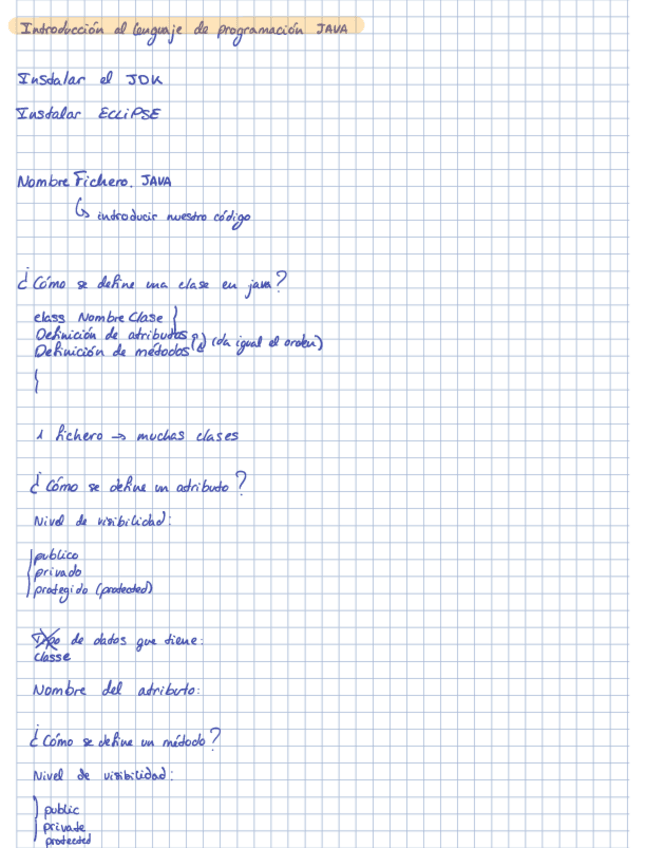 Introducción al lenguaje de programación JAVA
Instalar el JDK
Instalar ECLiPSE
Nombre Fichero. JAVA
↳ introducir nuestro código
¿Cómo se define una clase en java?
class Nombre Clase }
Definición de atributos
Definición de métodos (da igual el orden)
{
1 fichero → muchas clases
¿Cómo se define un atributo?
Nivel de visibilidad:
publico
privado
protegido (protected)
Tipo de datos que tiene:
classe
Nombre del atributo:
¿Cómo se define un método?
Nivel de visibilidad:
public
private
protected